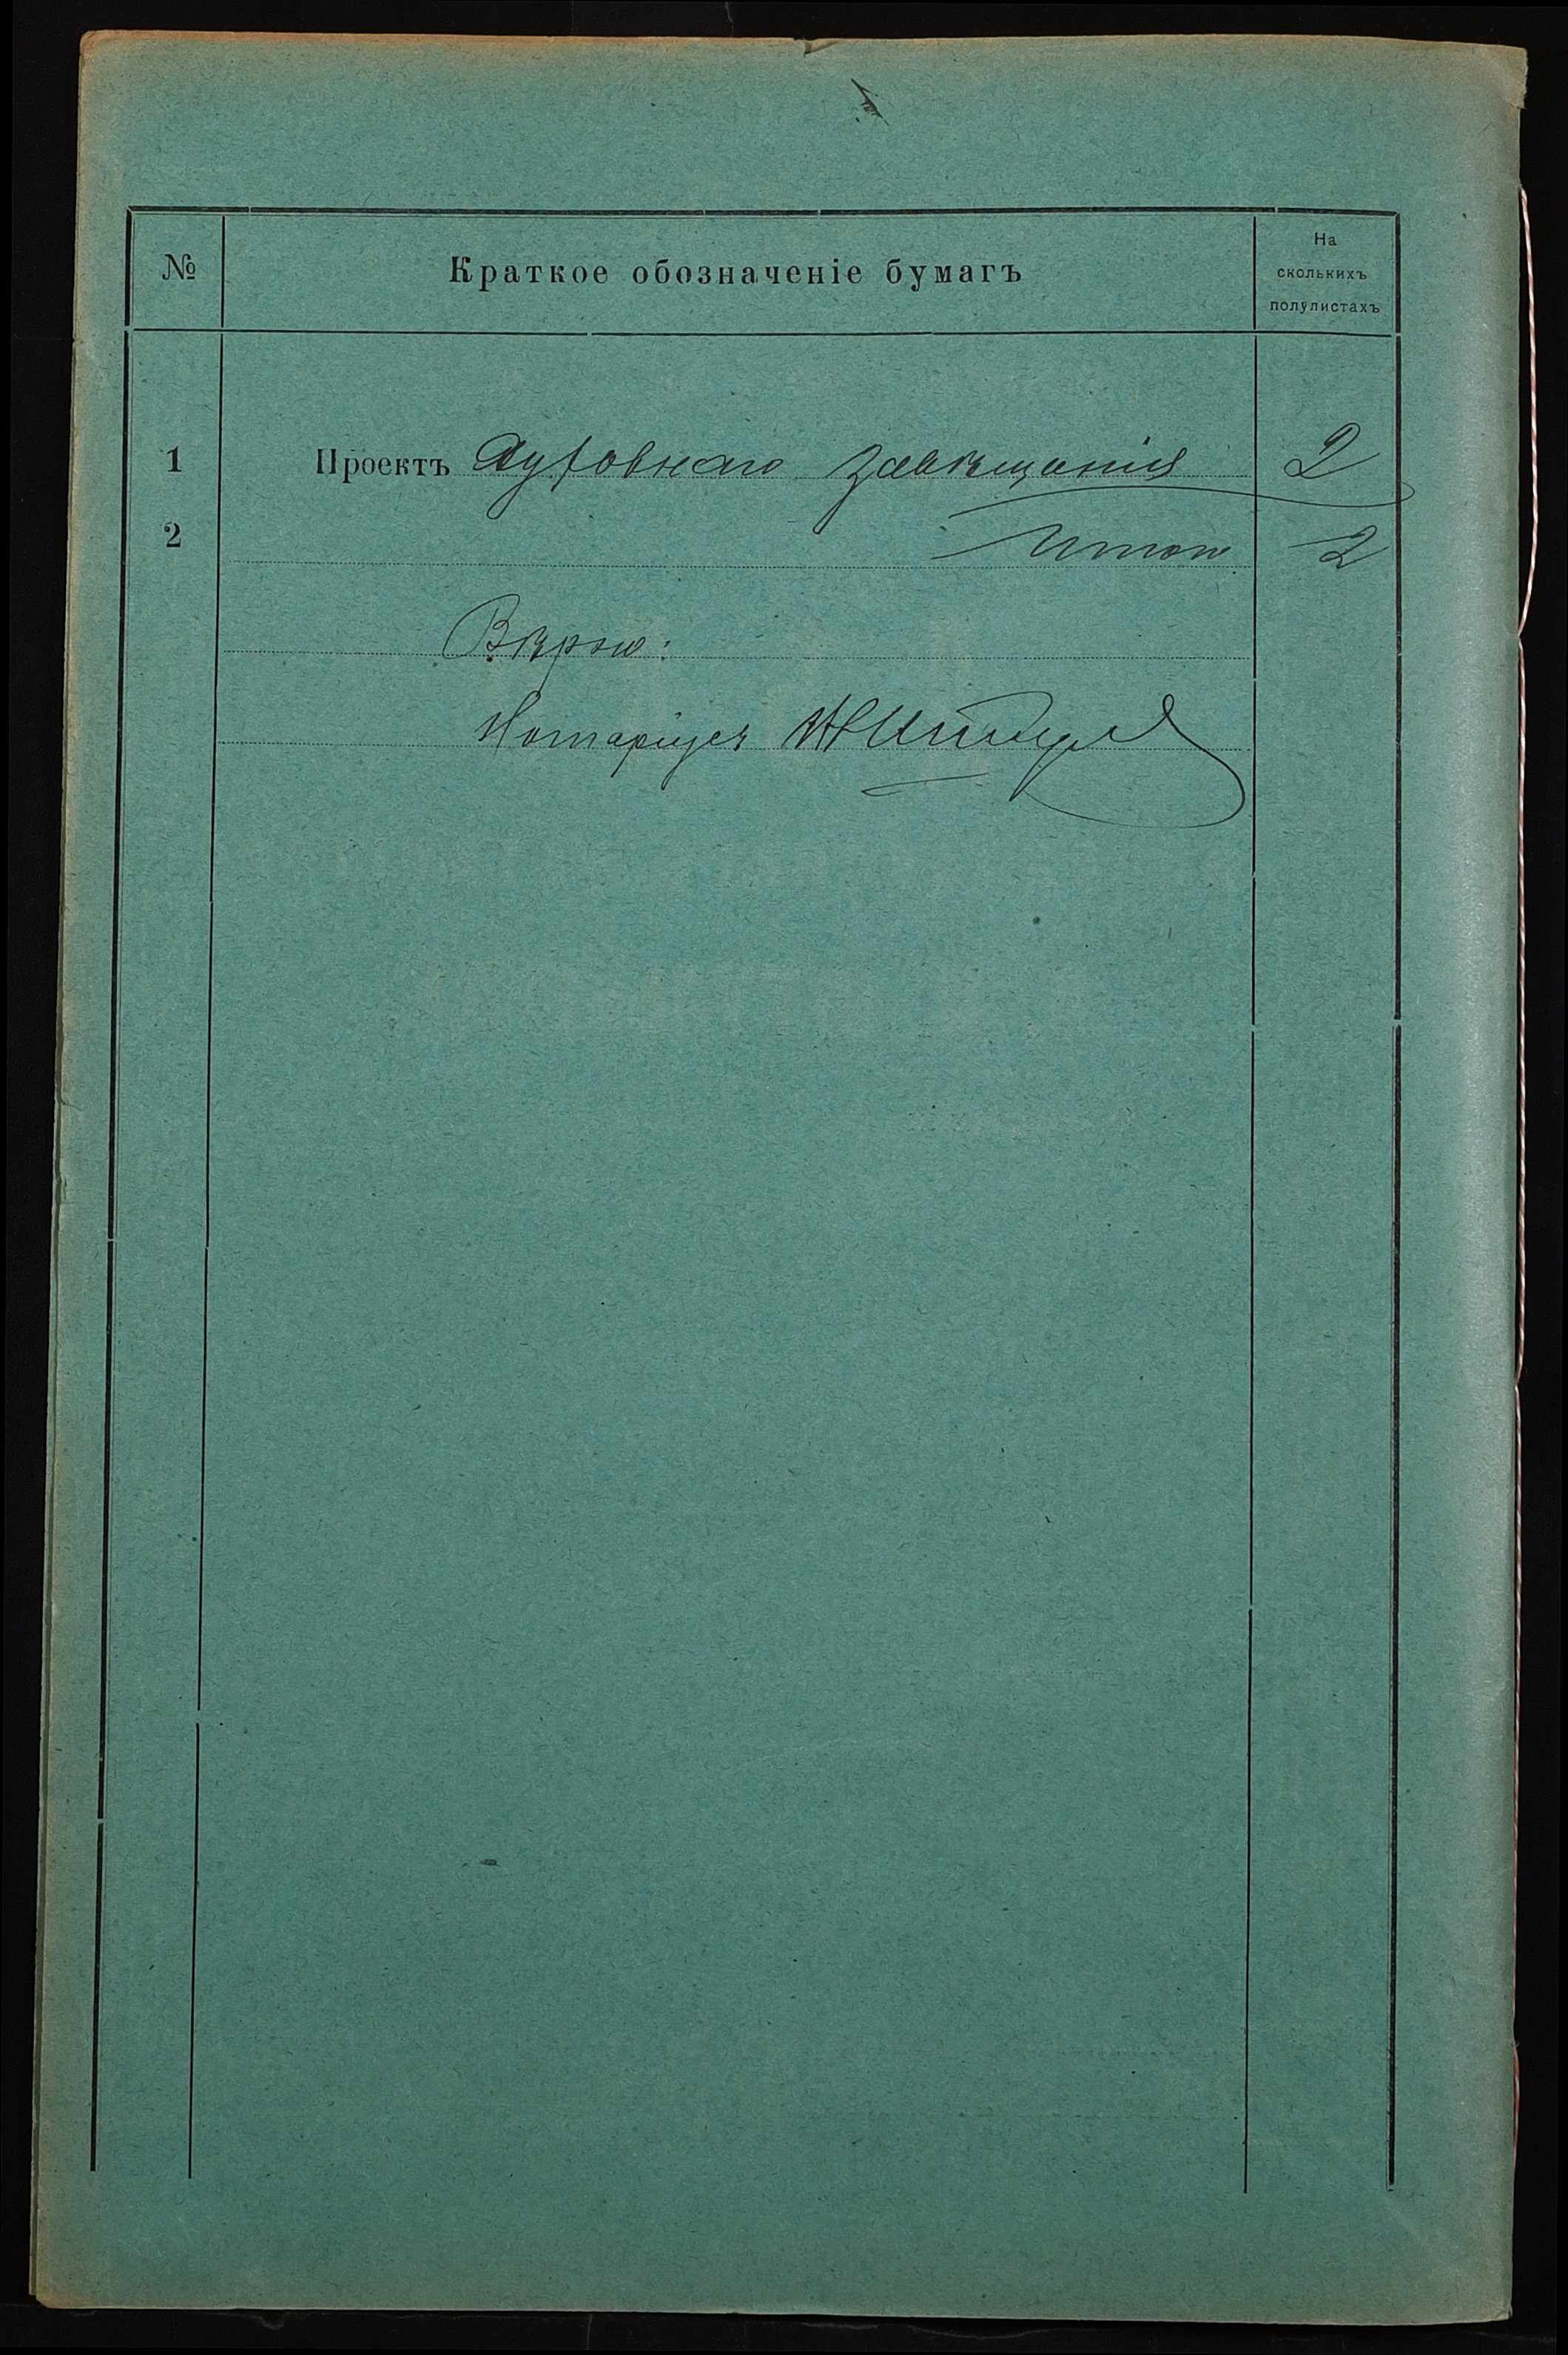 № Краткое обозначеніе бумагъ На
сколькихъ
полулистахъ
1 Проектъ Духовнаго завѣщанія 2
2 Итого 2
Вѣрно:
Нотаріусъ